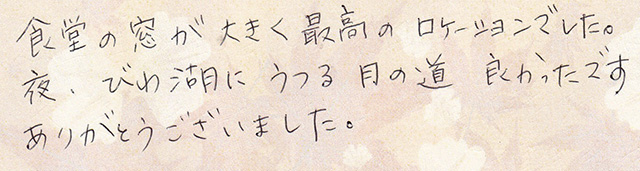 食堂の窓が大きく最高のロケーションでした。
夜、びわ湖にうつる月の道 良かったです
ありがとうございました。